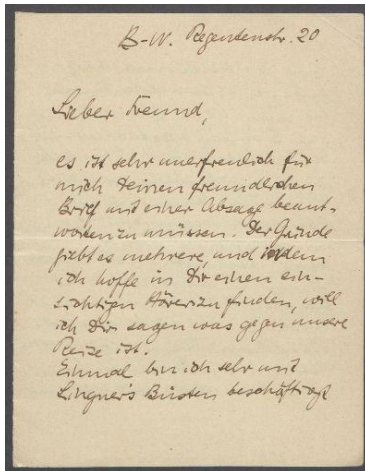 B-W. Regentenstr. 20
Lieber Freund,
es ist sehr unerfreulich für
mich Deinen freundlichen
Brief mit einer Absage beant-
worten zu müssen. Der Gründe
giebt es mehrere, und indem
ich hoffe in Dir einen ein-
sichtigen Hörer zu finden, will
ich Dir sagen was gegen unsere
Reise ist.
Einmal bin ich sehr mit
Lingner's Büsten beschäftigt